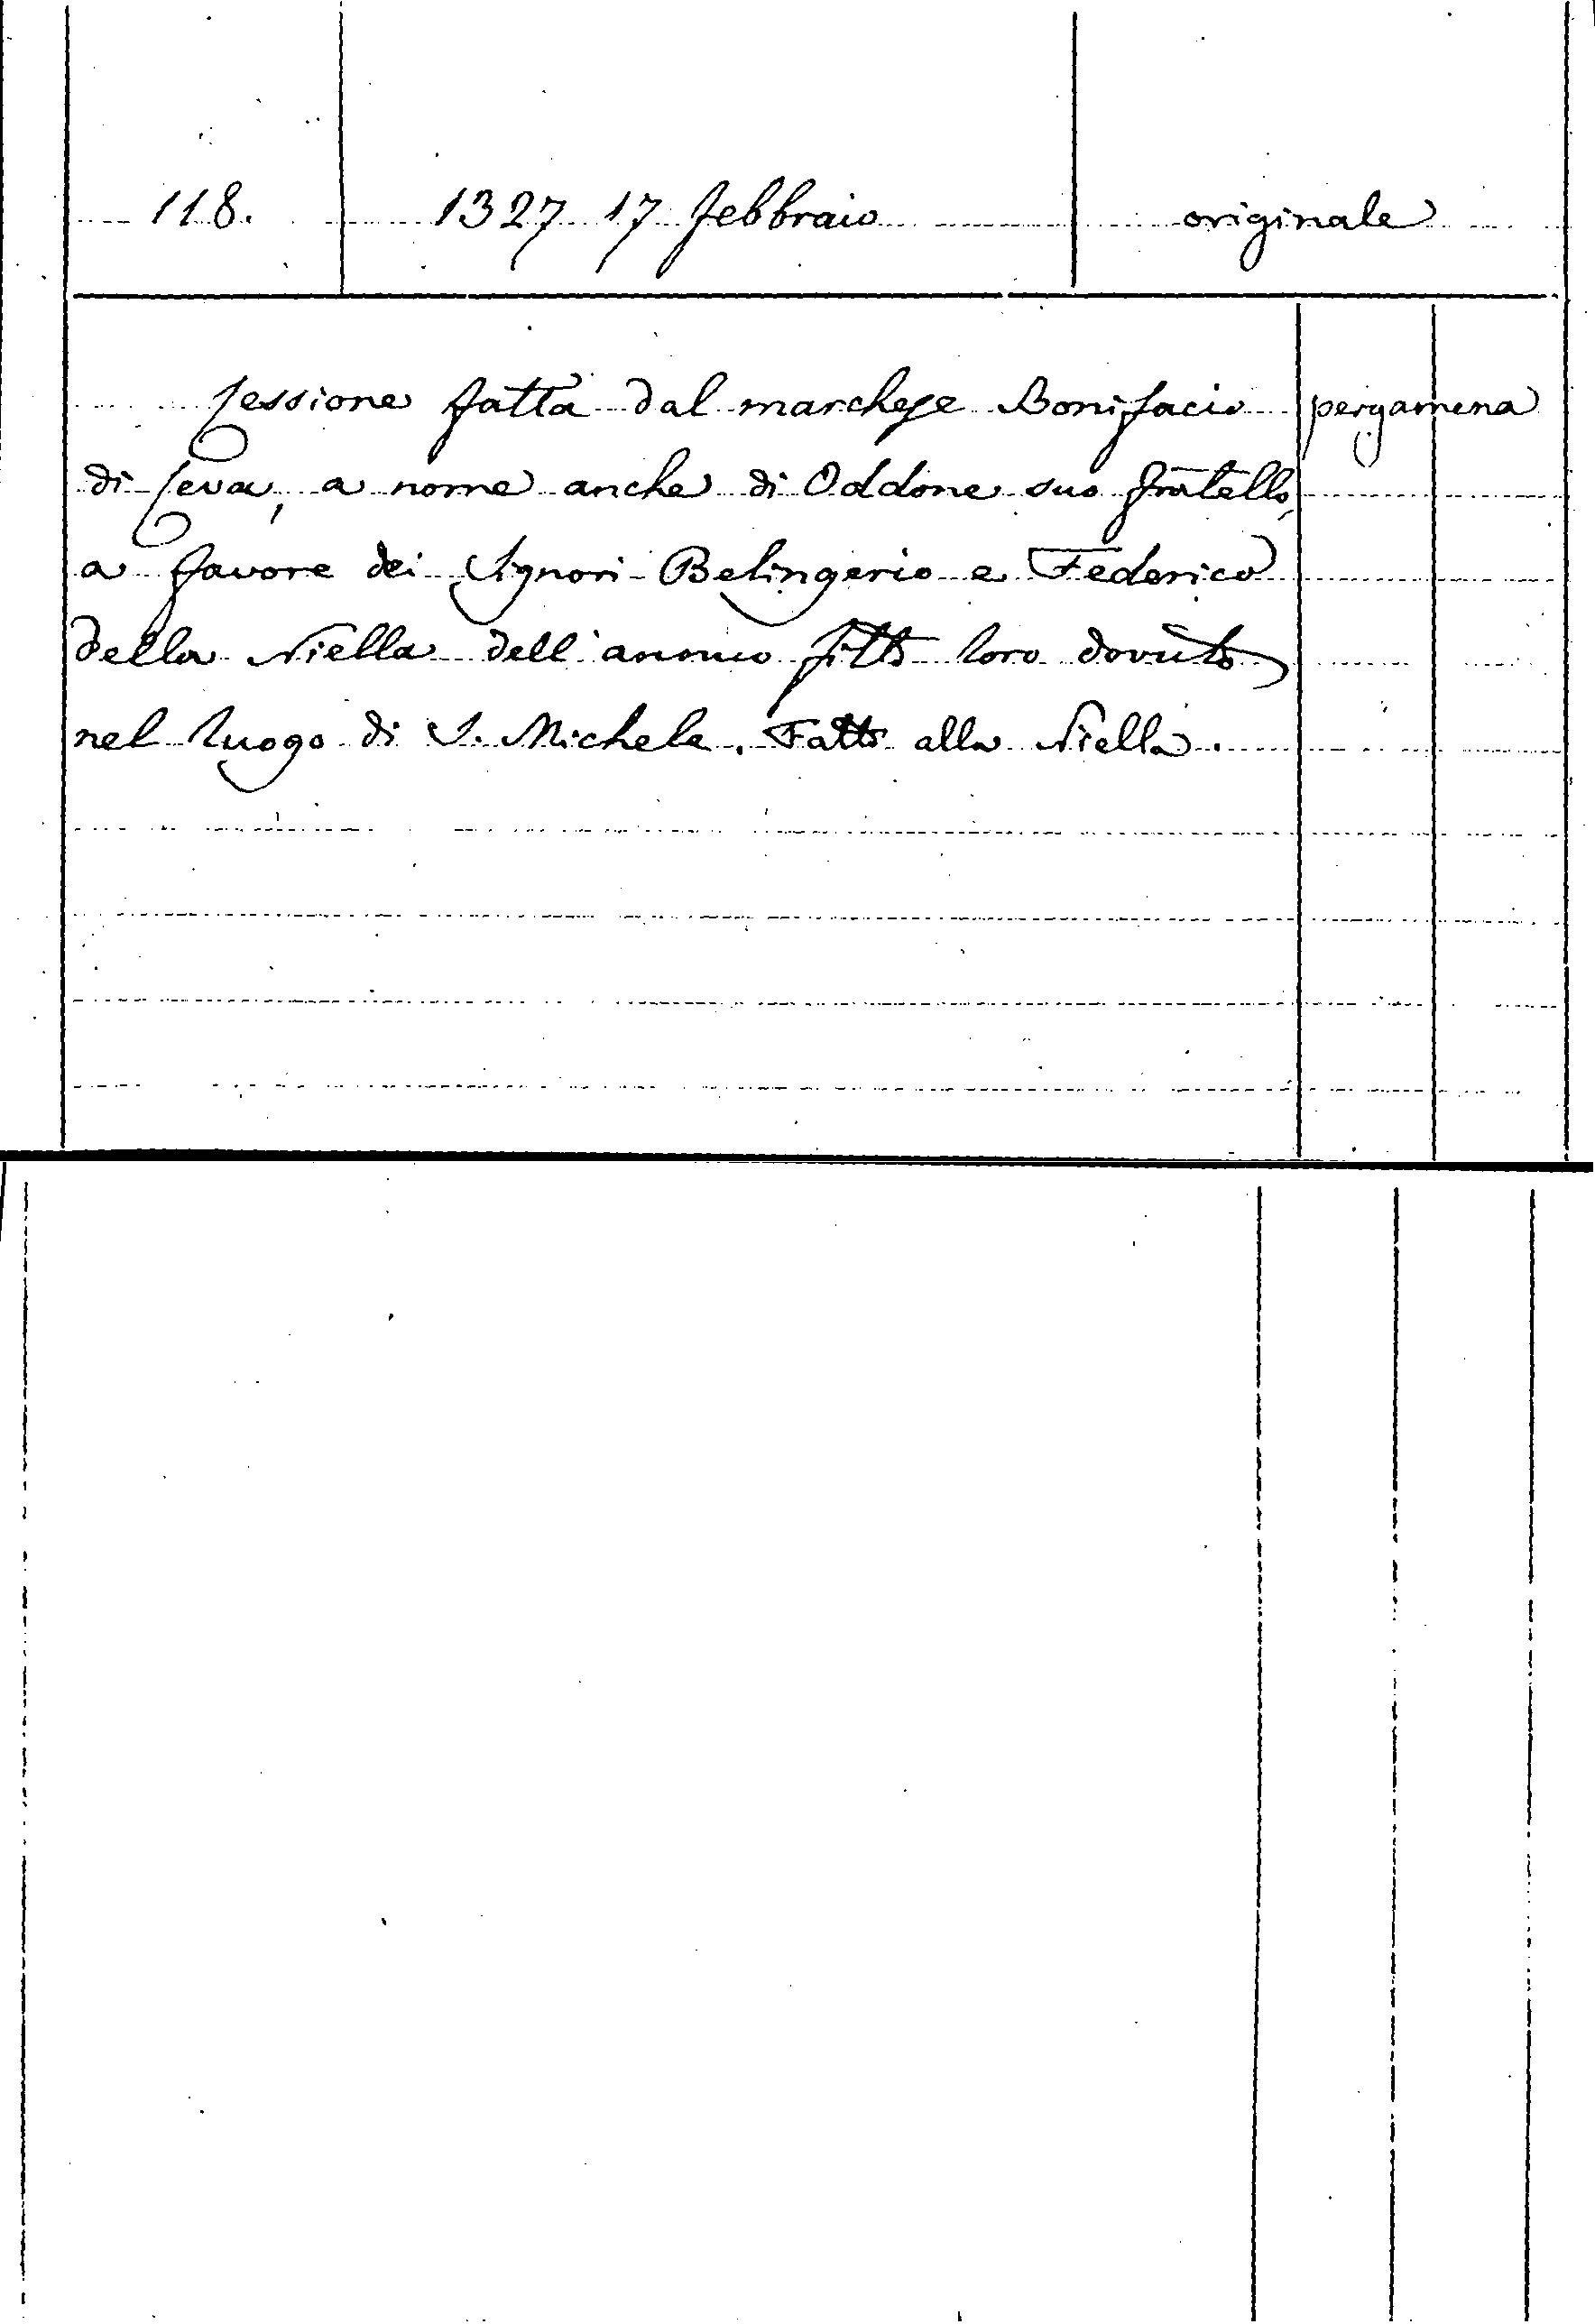 118. 1327 17 febbraio originale
Cessione fatta dal marchese Bonifacio pergamena
di Ceva, a nome anche di Oddone suo fratello,
a favore dei Signori Belingerio e Federico
della Niella dell'annuo fitto loro dovuto
nel luogo di S. Michele. Fatto alla Niella.